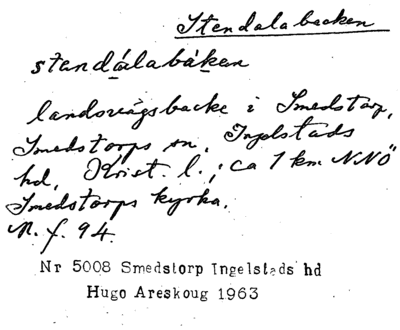 Stendalabacken
stendálabáken
landsvägsbacke i Smedstorp,
Smedstorps sn, Ingelstads
hd, Krist. l.; ca 1 km NNÖ
Smedstorps kyrka.
M. f. 94.
Nr 5008 Smedstorp Ingelstads hd
Hugo Areskoug 1963